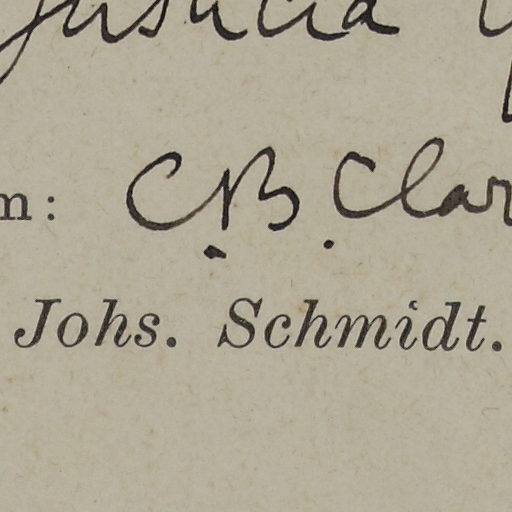 Justicia
m: C. B. Clar
Johs. Schmidt.